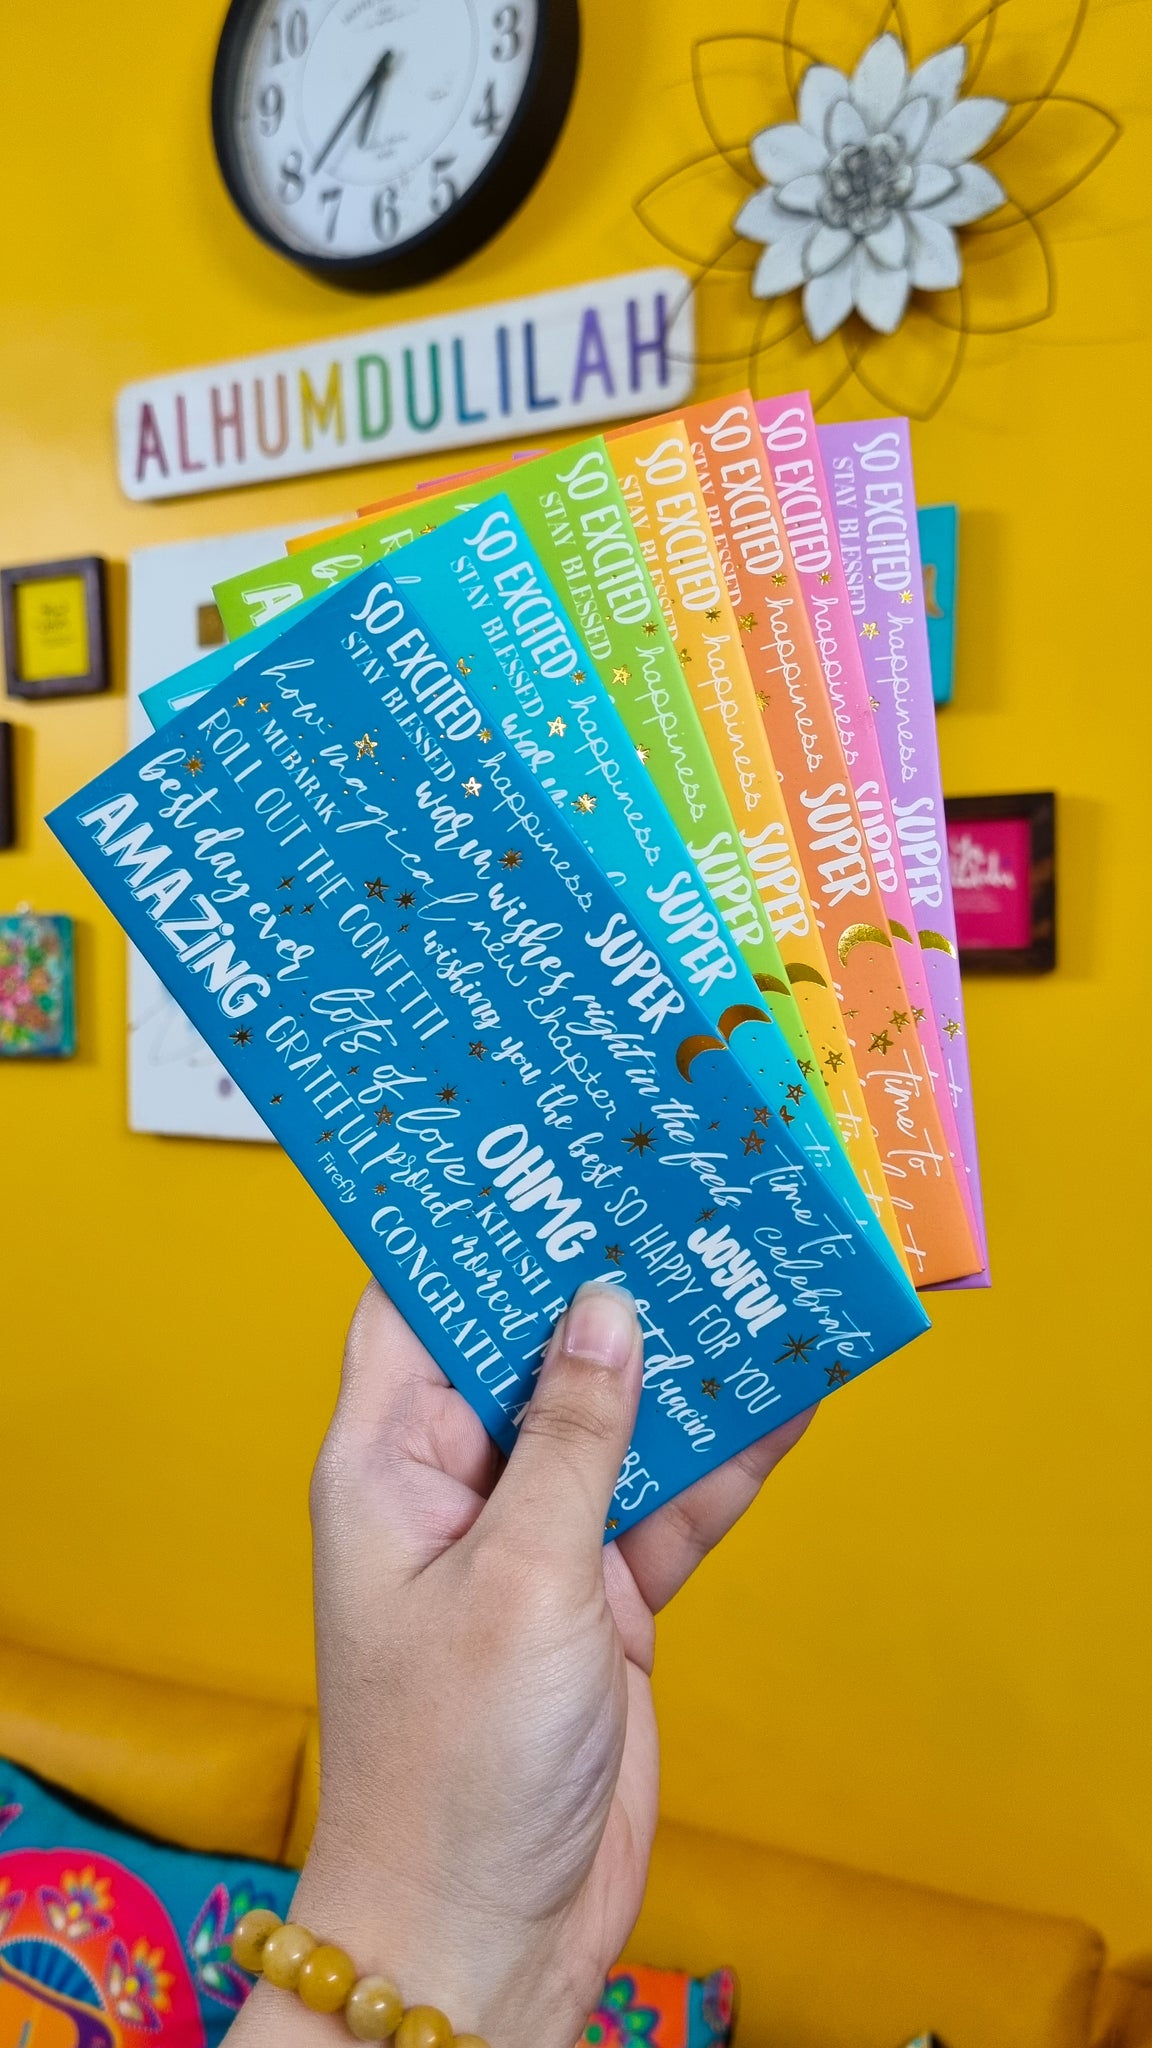 10
3
9
4
8
7
6
5
ALHUMDULILAH
SO EXCITED
STAY BLESSED
happiness
SUPER
time to
SO EXCITED
happiness
SUPER
SO EXCITED
STAY BLESSED
happiness
SUPER
time to
SO EXCITED
STAY BLESSED
happiness
SUPER
SO EXCITED
STAY BLESSED
happiness
SUPER
SO EXCITED
STAY BLESSED
happiness
SUPER
warm
SO EXCITED happiness SUPER time to celebrate
STAY BLESSED warm wishes right in the feels JOYFUL
how magical new chapter SO HAPPY FOR YOU
MUBARAK wishing you the best
ROLL OUT THE CONFETTI OHMG
best day ever lots of love KHUSH
AMAZING GRATEFUL proud moment
Firefly CONGRATULA